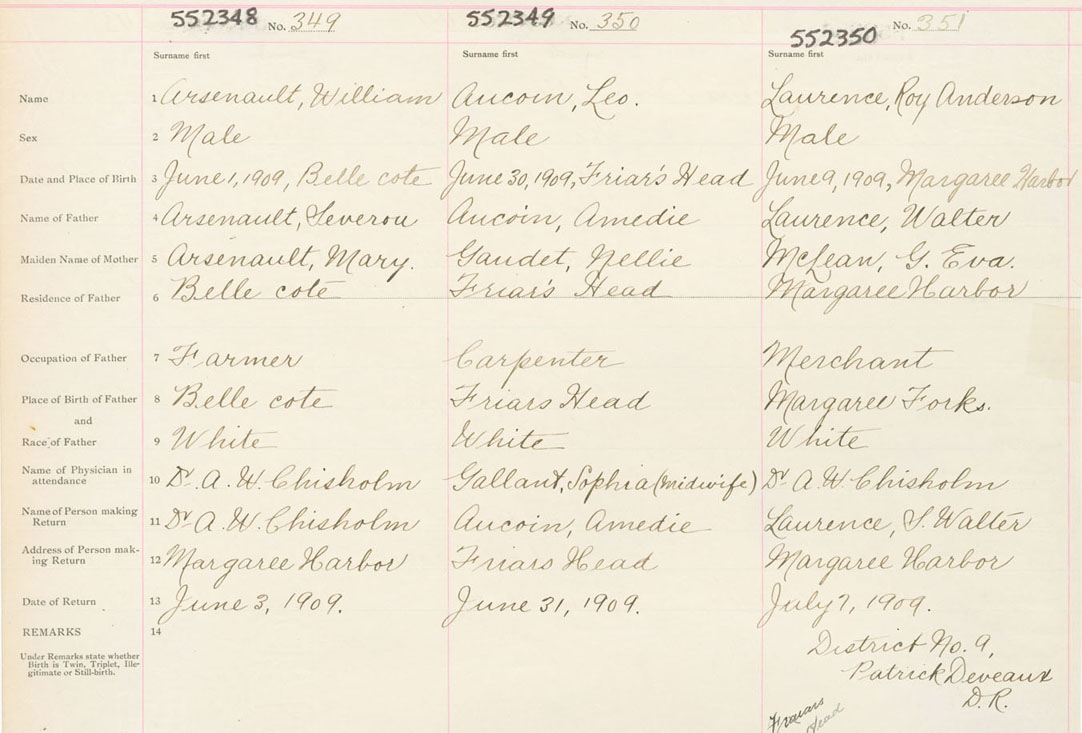 552348 No. 349 552349 No. 350 552350 No. 351
Surname first Surname first Surname first
Name 1 Arsenault, William Aucoin, Leo. Laurence, Roy Anderson
Sex 2 Male Male Male
Date and Place of Birth 3 June 1, 1909, Belle cote June 30, 1909, Friar's Head June 9, 1909, Margaree Harbor
Name of Father 4 Arsenault, Severou Aucoin, Amedie Laurence, Walter
Maiden Name of Mother 5 Arsenault, Mary. Gaudet, Nellie McLean, G. Eva.
Residence of Father 6 Belle cote Friar's Head Margaree Harbor
Occupation of Father 7 Farmer Carpenter Merchant
Place of Birth of Father 8 Belle cote Friars Head Margaree Forks.
and
Race of Father 9 White White White
Name of Physician in
attendance 10 Dr. A. W. Chisholm Gallant, Sophia (midwife) Dr A. W. Chisholm
Name of Person making
Return 11 Dr A. W. Chisholm Aucoin, Amedie Laurence, S. Walter
Address of Person mak-
ing Return 12 Margaree Harbor Friars Head Margaree Harbor
Date of Return 13 June 3, 1909. June 31, 1909. July 7, 1909.
REMARKS 14
Under Remarks state whether
Birth is Twin, Triplet, Ille-
gitimate or Still-birth.
District No. 9,
Patrick Deveaux
D. R.
Head